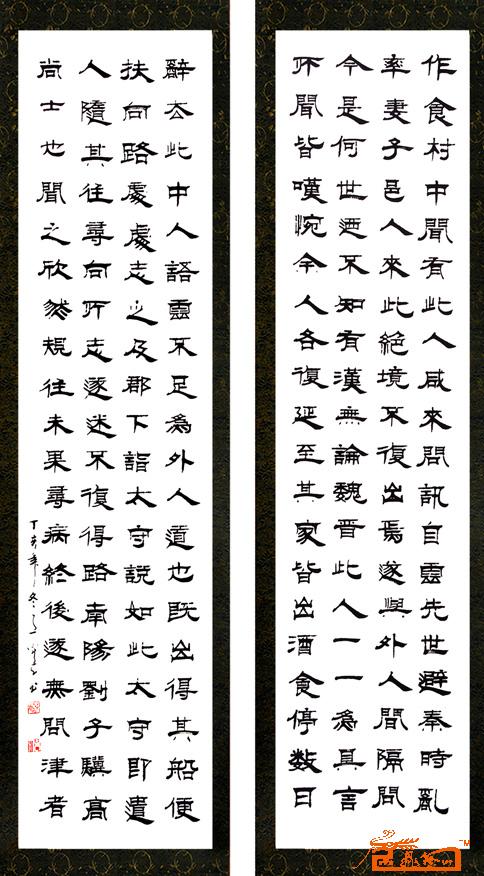 作食村中聞有此人咸來問訊自雲先世避秦時亂
率妻子邑人來此絕境不復出焉遂與外人間隔問
今是何世迺不知有漢無論魏晉此人一一為具言
所聞皆嘆惋余人各復延至其家皆出酒食停數日
辭去此中人語雲不足為外人道也既出得其船便
扶向路處處志之及郡下詣太守說如此太守即遣
人隨其往尋向所志遂迷不復得路南陽劉子驥高
尚士也聞之欣然規往未果尋病終後遂無問津者
丁亥年冬月